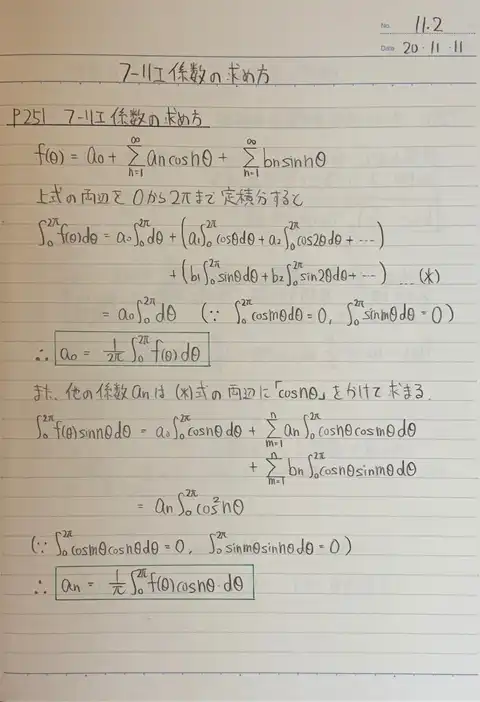 No. 11.2
Date 20・11・11
フーリエ係数の求め方
P251 フーリエ係数の求め方
f(θ) = a₀ + ∑_{n=1}^{∞} aₙcosnθ + ∑_{n=1}^{∞} bₙsinnθ
上式の両辺を0から2πまで定積分すると
∫₀^{2π} f(θ)dθ = a₀∫₀^{2π}dθ + (a₁∫₀^{2π}cosθdθ + a₂∫₀^{2π}cos2θdθ + ⋯)
+ (b₁∫₀^{2π}sinθdθ + b₂∫₀^{2π}sin2θdθ + ⋯) … (*)
= a₀∫₀^{2π}dθ (∵ ∫₀^{2π}cosmθdθ = 0, ∫₀^{2π}sinmθdθ = 0)
∴ a₀ = 1/2π ∫₀^{2π} f(θ)dθ
また、他の係数aₙは(*)式の両辺に「cosnθ」をかけて求まる.
∫₀^{2π} f(θ)sinnθdθ = a₀∫₀^{2π}cosnθdθ + ∑_{m=1}^{n} aₙ∫₀^{2π}cosnθcosmθdθ
+ ∑_{m=1}^{n} bₙ∫₀^{2π}cosnθsinmθdθ
= aₙ∫₀^{2π}cos²nθ
(∵ ∫₀^{2π}cosmθcosnθdθ = 0, ∫₀^{2π}sinmθsinnθdθ = 0)
∴ aₙ = 1/π ∫₀^{2π} f(θ)cosnθ・dθ